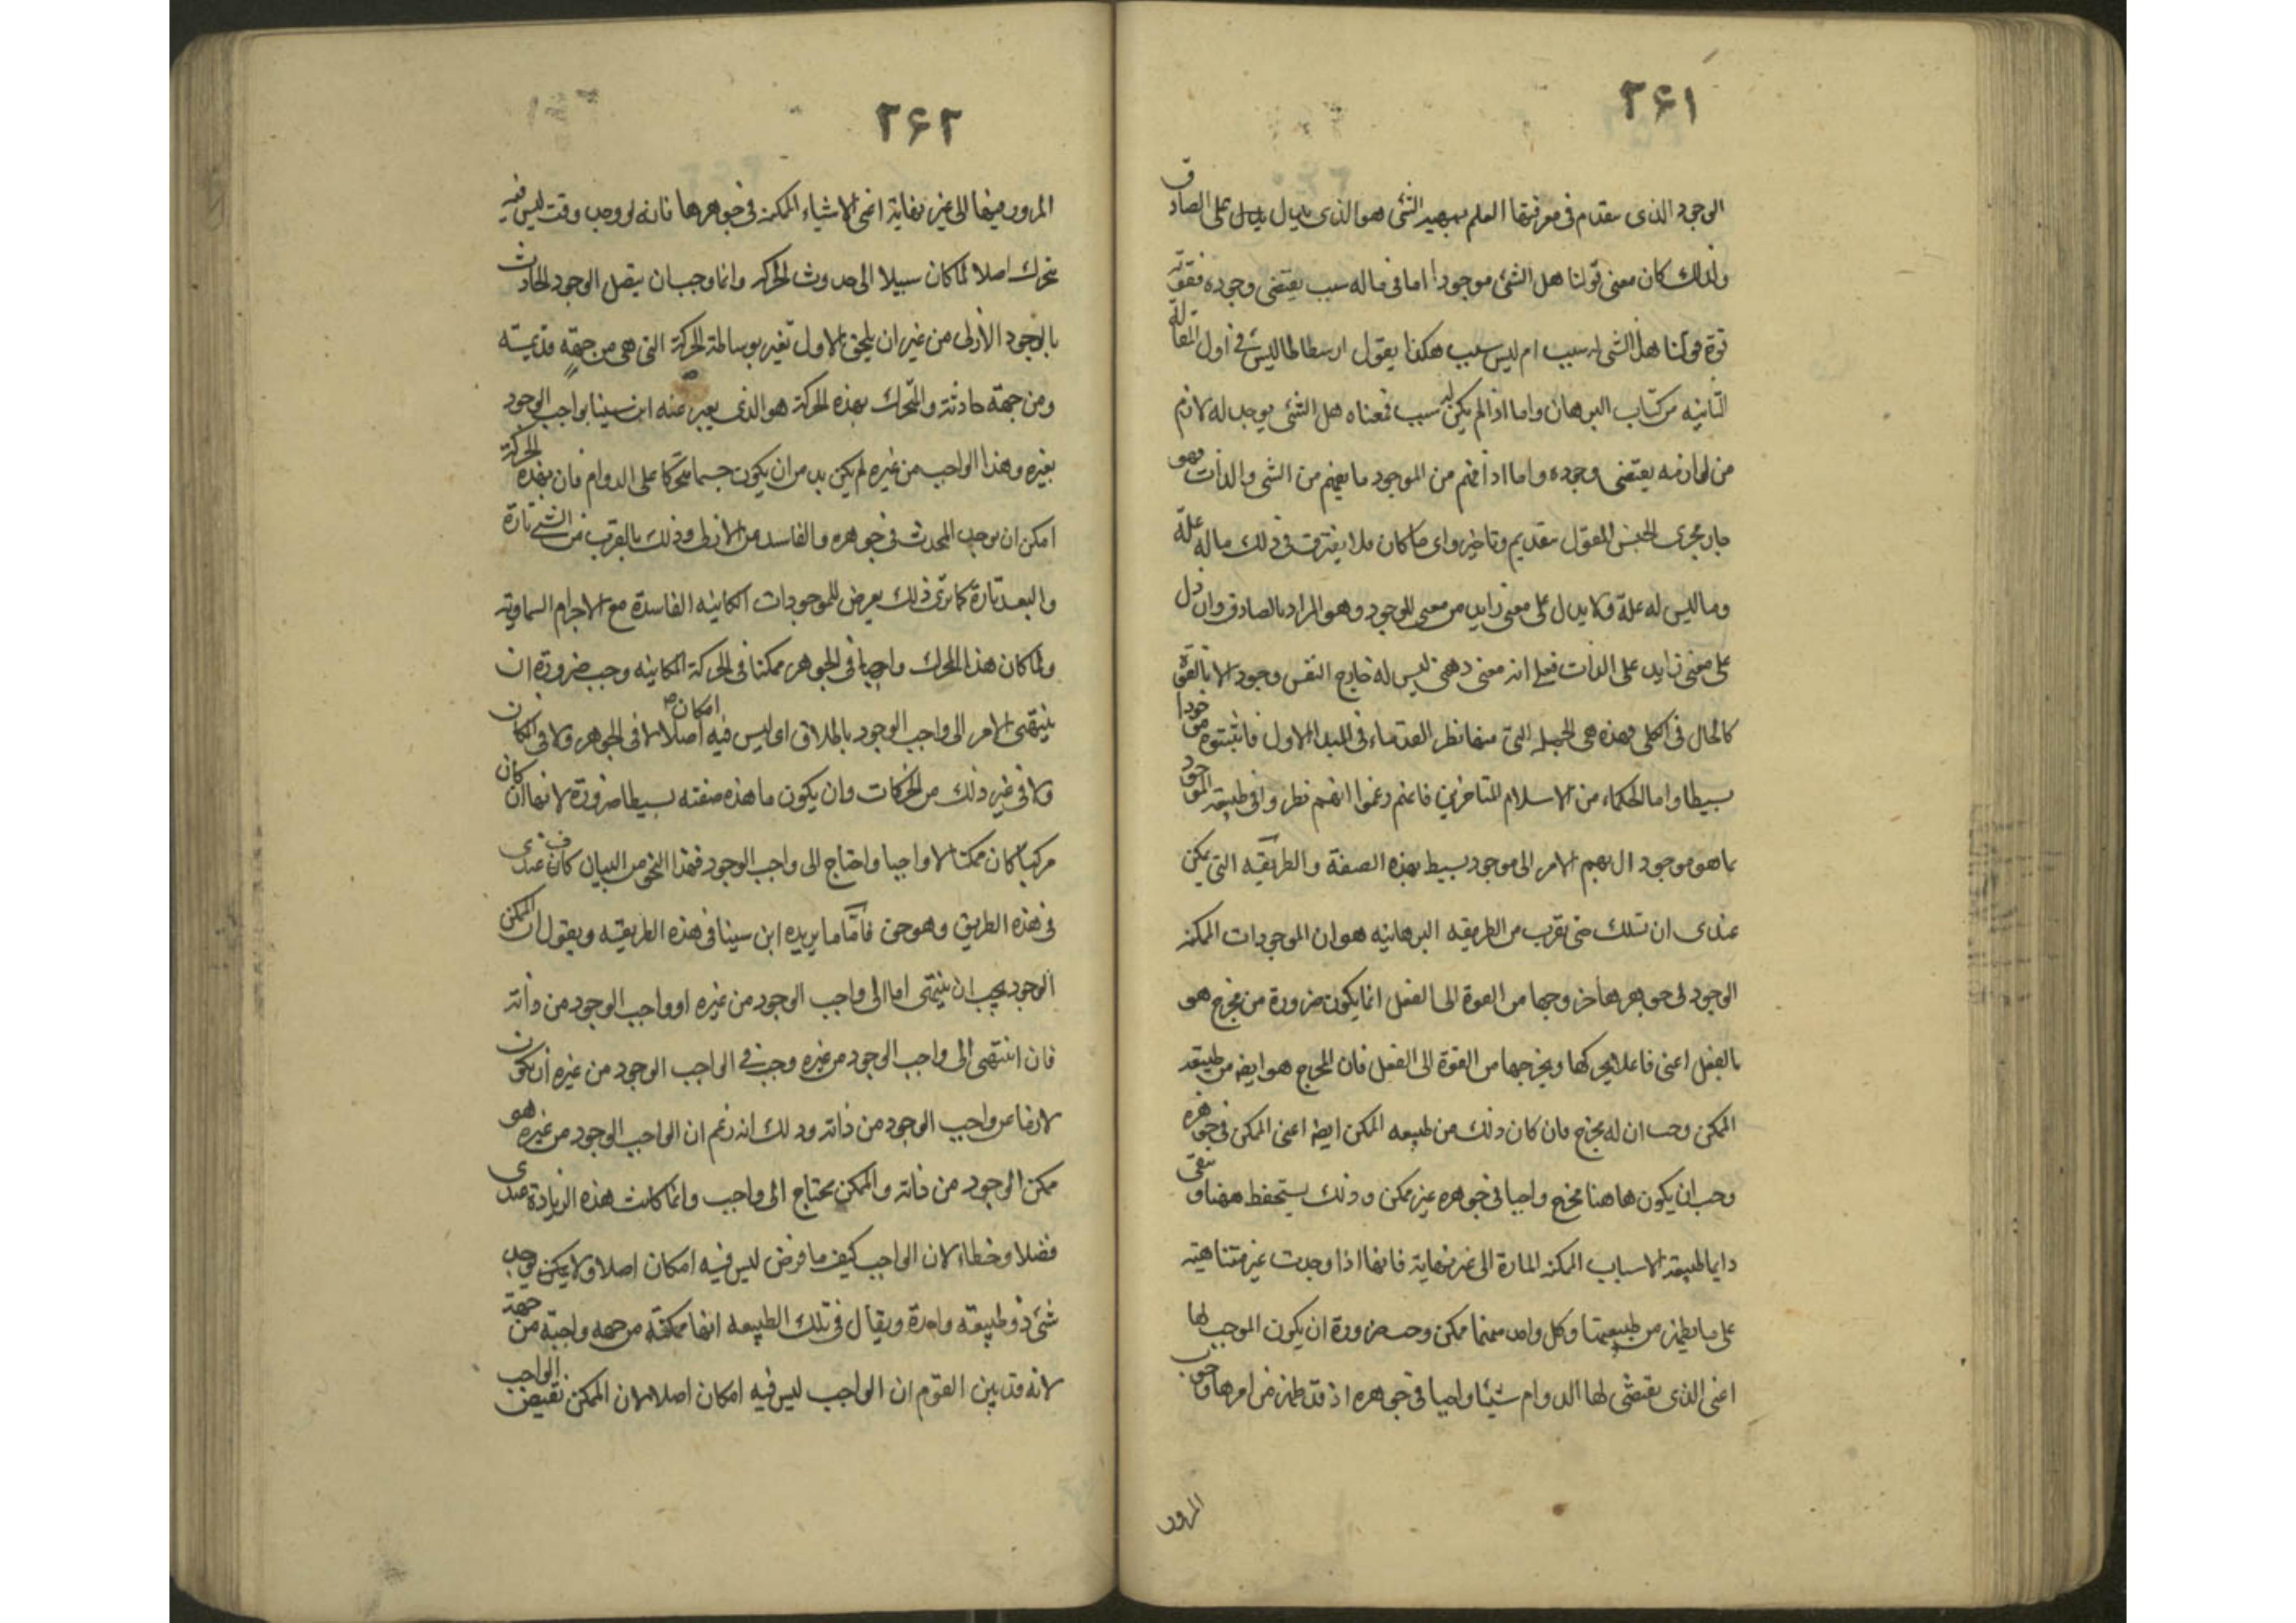 ٢۶١
الوجود الذى يتقدم فى معرفتنا العلم بمهية الشئ هو الذى يدل يدل على الصادق
ولذلك كان معنى قولنا هل الشئ موجود اما فى ماله سبب يقتضى وجوده فقوته
قوة قولنا هل الشئ له سبب ام ليس سبب هكذا يقول ارسطاطاليس فى اول المقالة
الثانيه من كتاب البرهان واما اذا لم يكن له سبب فمعناه هل الشئ يوجد له لازم
من لوازمه يقتضى وجوده واما اذا فهم من الموجود ما يفهم من الشئ والذات فهو
جار مجرى الجنس المقول بتقديم وتاخير واى ما كان فلا يفترق فى ذلك ماله علة
وما ليس له علة ولا يدل على معنى زايد من معنى الوجود وهو المراد بالصادق وان دل
على معنى زايد على الذات فعلى انه معنى ذهنى ليس له خارج النفس وجود الا بالقوة
كالحال فى الكلى فهذه هى الجهة التى منها نظر القدماء فى المبدا الاول فاثبتوه موجودا
بسيطا واما الحكماء من الاسلام المتاخرين فانهم زعموا انهم نظروا فى طبيعة الموجود
بما هو موجود ال بهم الامر الى موجود بسيط بهذه الصفة والطريقه التى يمكن
عندى ان تسلك حتى تقرب من الطريقه البرهانيه هو ان الموجودات الممكنه
الوجود فى جوهرها خروجها من القوة الى الفعل انما يكون ضرورة من مخرج هو
بالفعل اعنى فاعلا يحركها ويخرجها من القوة الى الفعل فان المخرج هو ايضه من طبيعة
الممكن وجب ان له مخرج فان كان ذلك من طبيعه الممكن ايضا اعنى الممكن فى جوهره
وجب ان يكون هاهنا مخرج واجبا فى جوهره غير ممكن وذلك يستحفظ ههنا وتبقى
دايما طبيعة الاسباب الممكنه المارة الى غير نهاية فانها اذا وجدت غير متناهية
على ما يظهر من طبيعتها وكل واحد منهما ممكن وجب ضرورة ان يكون الموجب لها
اعنى الذى يقتضى لها الدوام شيئا واجبا فى جوهره اذ قد ظهر من امرها وجوب
المرور
٢۶٢
المرور منها الى غير نهاية اعنى الاشياء الممكنه فى جوهرها فانه لو وجد وقت ليس فيه
متحرك اصلا لما كان سبيلا الى حدوث الحركه وانما وجب ان يتصل الوجود الحادث
بالوجود الازلى من غير ان يلحق الاول تغير بوساطة الحركة التى هى من جهة قديمة
ومن جهة حادثة والمتحرك بهذه الحركة هو الذى يعبر عنه ابن سينا بواجب الوجود
بغيره وهذا الواجب من غيره لم يكن بد من ان يكون جسما متحركا على الدوام فان بهذه الحركة
امكن ان يوجد المحدث فى جوهره والفاسد من الازلى وذلك بالقرب من الشئ تارة
والبعد تارة كما ترى ذلك يعرض للموجودات الكاينه الفاسدة مع الاجرام السماوية
ولما كان هذا المحرك واجبا فى الجوهر ممكنا فى الحركة المكانيه وجب ضرورة ان
ينتهى الامر الى واجب الوجود باطلاق اى ليس فيه امكان اصلا لا فى الجوهر ولا فى المكان
ولا فى غير ذلك من الحركات وان يكون ما هذه صفته بسيطا ضرورة لانها ان كان
مركبا كان ممكنا لا واجبا واحتاج الى واجب الوجود فهذا النحو من البيان كاف عندى
فى هذه الطريق وهو حق فاما ما يريده ابن سينا فى هذه الطريقه ويقول ان الممكن
الوجود يجب ان ينتهى اما الى واجب الوجود من غيره او واجب الوجود من ذاته
فان انتهى الى واجب الوجود من غيره وجب فى الواجب الوجود من غيره ان يكون
لازما عن واجب الوجود من ذاته وذلك انه زعم ان الواجب الوجود من غيره هو
ممكن الوجود من ذاته والممكن يحتاج الى واجب وانما كانت هذه الزيادة عندى
فضلا وخطاء لان الواجب كيف ما فرض ليس فيه امكان اصلا ولا يمكن يوجد
شئ ذو طبيعة واحدة ويقال فى تلك الطبيعه انها ممكنة من جهه واجبة من جهة
لانه قد بين القوم ان الواجب ليس فيه امكان اصلا لان الممكن نقيض الواجب